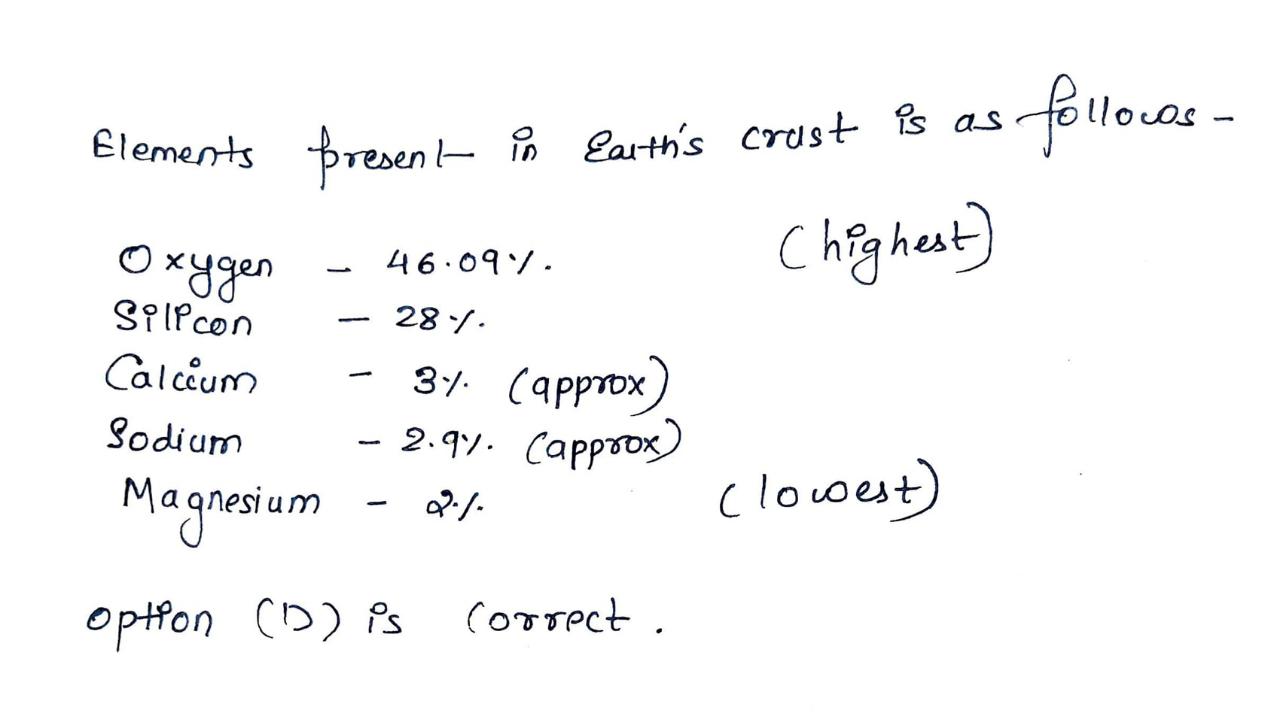 Elements present in Earth's crust is as follows -
Oxygen - 46.09%. (highest)
Silicon - 28%.
Calcium - 3%. (approx)
Sodium - 2.9%. (approx)
Magnesium - 2%. (lowest)
option (D) is correct.